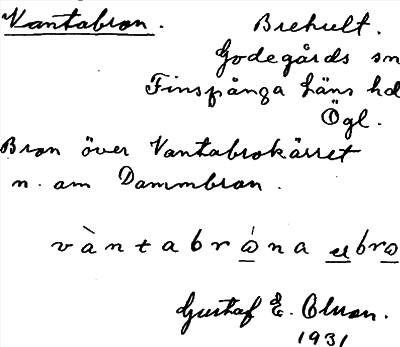 Vantabron. Brehult.
Godegårds sn
Finspånga läns hd
Ögl.
Bron över Vantabrokärret
n. om Dammbron.
vàntabrona
Gustaf E. Olson.
1931